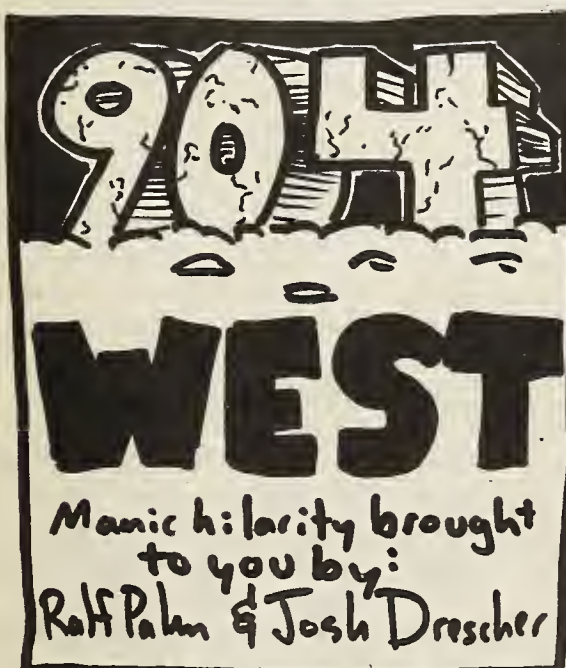 904
WEST
Manic hilarity brought
to you by:
Ralf Palm & Josh Drescher